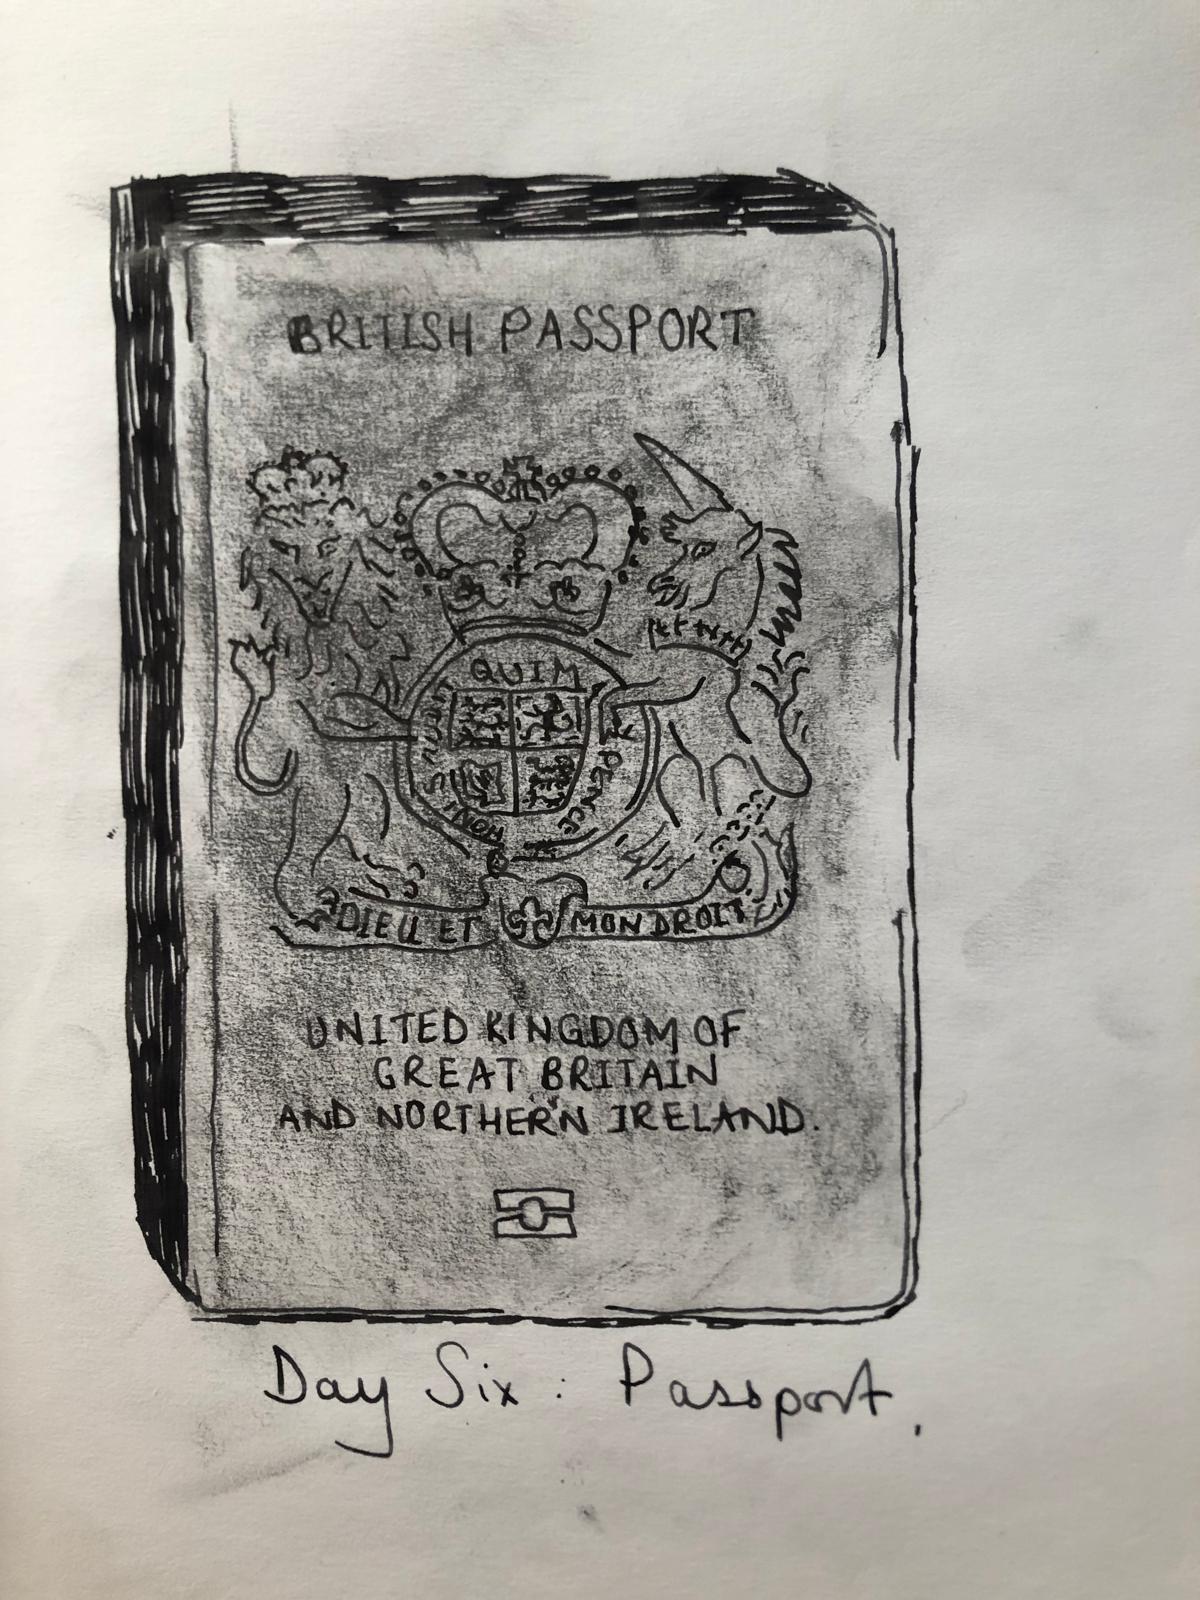 BRITISH PASSPORT
QUIM
HONI
DIEU ET MON DROIT
UNITED KINGDOM OF
GREAT BRITAIN
AND NORTHERN IRELAND.
Day Six : Passport.